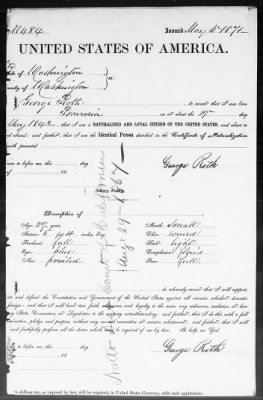 11484
Issued May 15 1871
UNITED STATES OF AMERICA.
State of Washington
County of Washington } ss:
George Roth, do swear that I was born
in Bavaria on or about the 19th day
of May 1842, that I am a NATURALIZED AND LOYAL CITIZEN OF THE UNITED STATES, and about to
travel abroad; and further, that I am the Identical Person described in the Certificate of Naturalization
herewith presented
Sworn to before me, this day
of 18
George Roth
Notary Public
Aug 29 1867
Description of
Age: 29 years Mouth: Small
Stature: 5 feet 4 inches, Eng. Chin: round
Forehead: full Hair: light
Eyes: blue Complexion: florid
Nose: pointed Face: full
do solemnly swear that I will support,
protect, and defend the Constitution and Government of the United States against all enemies, whether domestic
or foreign; and that I will bear true faith, allegiance, and loyalty to the same, any ordinance, resolution or law
of any State, Convention or Legislature to the contrary notwithstanding; and further, that I do this with a full
determination, pledge and purpose, without any mental reservation or evasion whatsoever; and further, that I will
well and faithfully perform all the duties which may be required of me by law. So help me, God.
Sworn to before me, this day
of 18
George Roth
dollars tax, as imposed by law, will be required, in United States Currency, with each application.